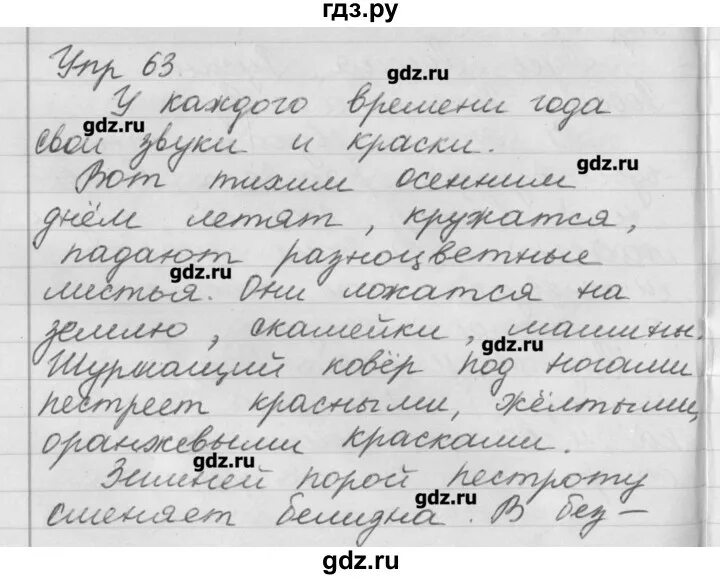 гдз.ру
Упр 63.
gdz.ru
У каждого времени года
gdz.ru
свои звуки и краски.
gdz.ru
Вот тихим осенним
днём летят, кружатся,
падают разноцветные
gdz.ru
листья. Они ложатся на
землю, скамейки, машины.
gdz.ru
Шуршащий ковёр под ногами
пестреет красными, жёлтыми,
оранжевыми красками.
gdz.ru
Зимней порой пестроту
gdz.ru
сменяет белизна. В без-
gdz.ru